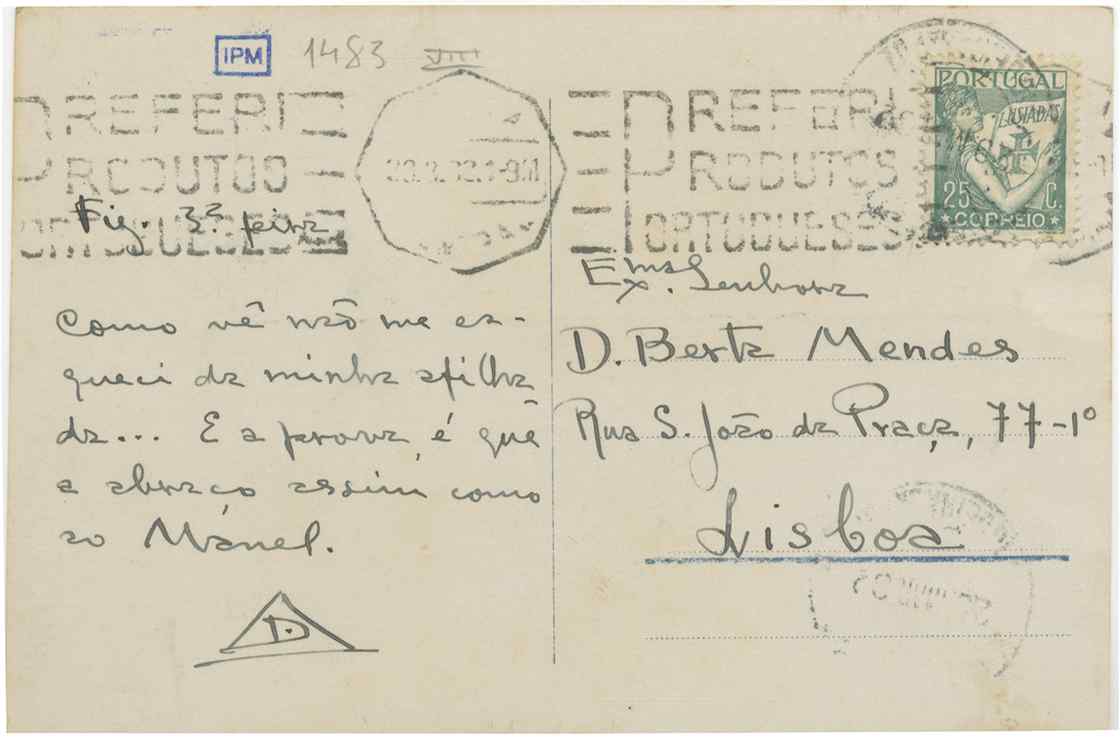 IPM 1483 VIII
PREFERI
PRODUTOS
PORTUGUESES
PREFERI
PRODUTOS
PORTUGUESES
PORTUGAL
LUSIADAS
25 C.
CORREIO
Fig. 3ª feira
Como vê não me es-
queci da minha afilha
da... E a prova é que
a abraço assim como
ao Mánel.
D.
Exmª. Senhora
D. Berta Mendes
Rua S. João da Praça, 77-1º
Lisboa